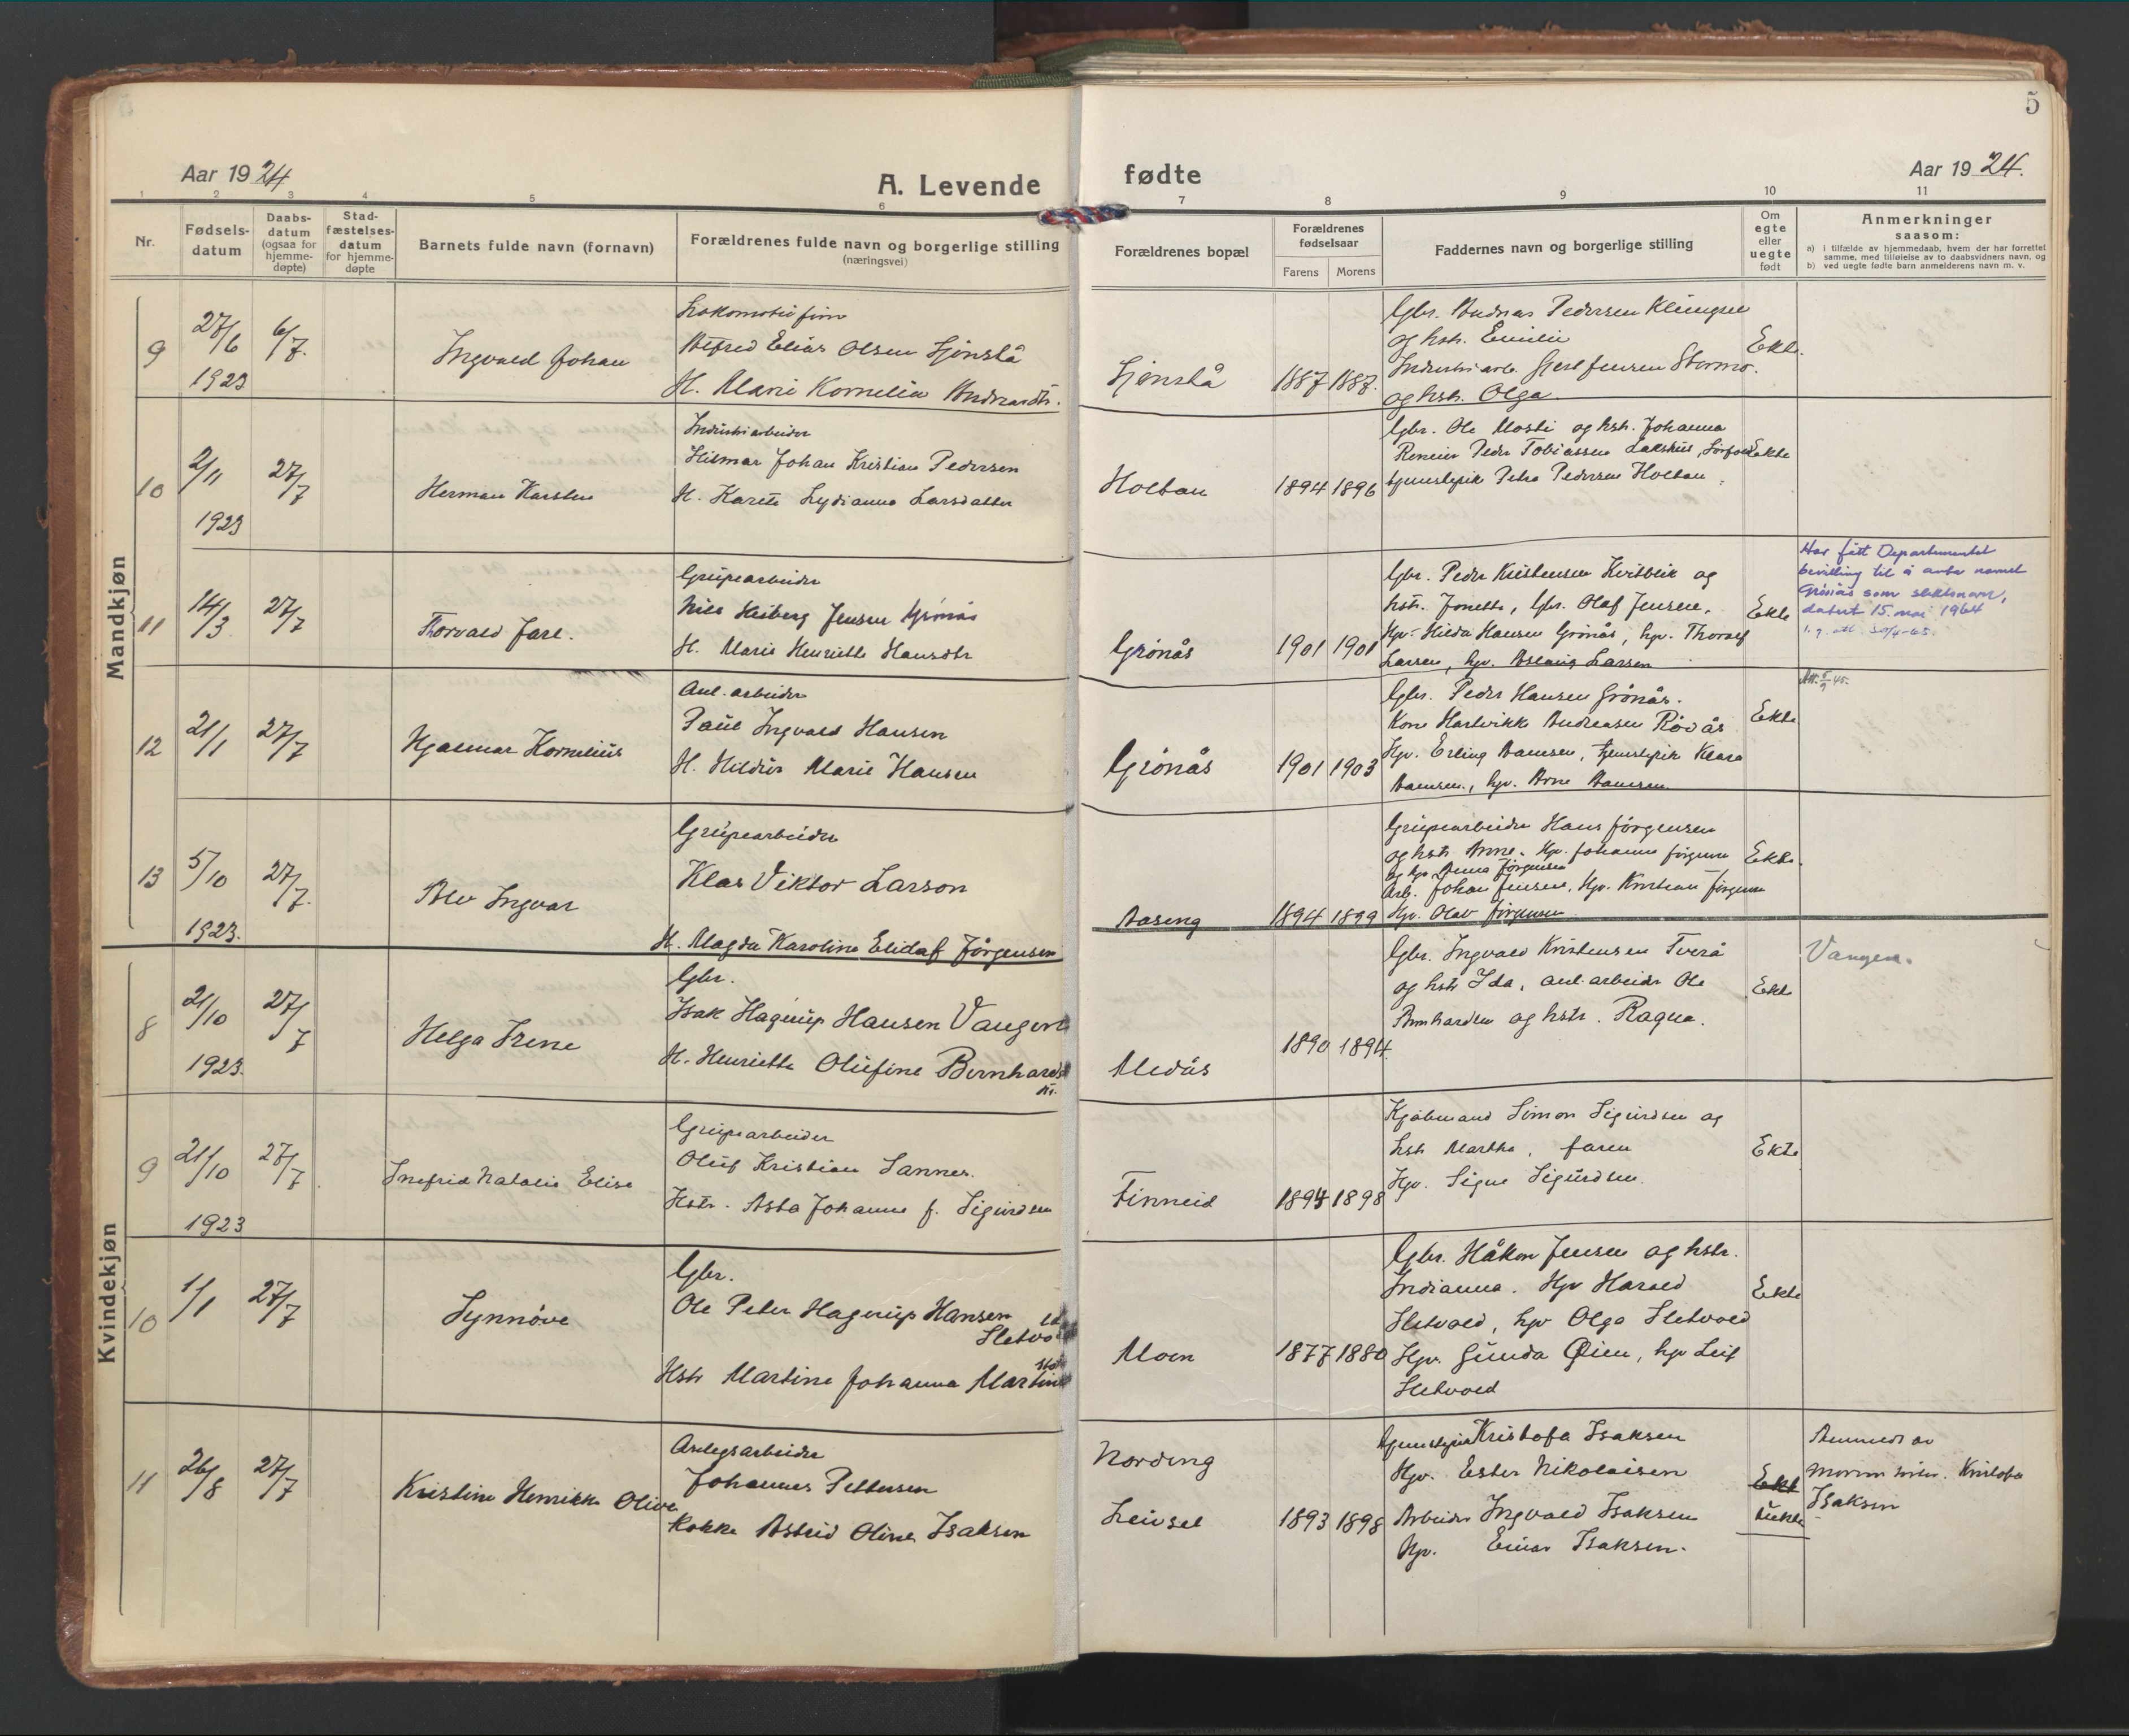 5
Aar 1924
A. Levende
fødte
Aar 1924.
1 2 3 4 5 6 7 8 9 10 11
Nr.
Fødselsdatum
Daabsdatum (ogsaa for hjemmedøpte)
Stadfæstelsesdatum for hjemmedøpte
Barnets fulde navn (fornavn)
Forældrenes fulde navn og borgerlige stilling
(næringsvei)
Forældrenes bopæl
Forældrenes fødselsaar
Farens Morens
Faddernes navn og borgerlige stilling
Om egte eller uegte født
Anmerkninger
saasom:
a) i tilfælde av hjemmedaab, hvem der har forrettet
samme, med tilføielse av to daabsvidners navn, og
b) ved uegte fødte barn anmelderens navn m. v.
Mandkjøn
9
27/6
1923
6/7.
Ingvald Johan
Alfred Elias Olsen Sjønstå
H. Marie Kornelia
Sjønstå
1887 1887.
Gbr. Andreas Pedersen
og hstr. Emilie
Jensen Stormo.
og hstr. Olga.
Ekte.
10
2/11
1923
27/7
Herman Karsten
Industriarbeider
Hilmar Johan Kristian Pedersen
H. Karete Lydianna Larsdatter
Holtan
1894 1896
Gbr. Ole Mosti og hstr. Johanna
Peder Tobiassen
Petra Pedersen Holtan
Ekte
11
14/3
27/7
Thorvald Jarl.
Grubearbeider
Nils Heiberg Jensen Grønås
H. Marie Henriette Hansdtr
Grønås
1901 1901
Gbr. Peder Kristensen Kvitblik og
hstr. Jonette, Gbr. Olaf Jensen,
Hpv. Hilda Hansen Grønås, hpv. Thoralf
Larsen, hpv. Aslaug Larsen
Ekte
Har fått Departementet
bevilling til å anta navnet
Grønås som slektsnavn,
datert 15 mai 1964
12
21/1
27/7
Hjalmar Kornelius
Anl. arbeider
Paul Ingvald Hansen
H. Hildur Marie Hansen
Grønås
1901 1903
Gbr. Peder Hansen Grønås.
Kone Hartvikke Andreasen Rødås
Hpv. Erling
hpv. Arne
Ekte
13
5/10
1923.
27/7.
Alv Ingvar
Grubearbeider
Klas Viktor Larson
H. Magda Karoline Elida f. Jørgensen
Aaseng
1894 1899
Grubearbeider Hans Jørgensen
og hstr Anne. Hpv. Johanne Jørgensen
og hpv Anna Jørgensen
Arb. Johan Jensen, Hpv. Kristian Jørgensen
Hpv. Olav Jørgensen
Ekte.
Kvindekjøn
8
21/10
1923.
27/7
Helga Irene
Gbr.
Isak Hagerup Hansen Vangen
H. Henriette Olufine Bernhards
dtr.
Medås
1890 1894.
Gbr. Ingvald Kristensen Tverå
og hstr Ida, anl. arbeider Ole
Bernhardsen og hstr. Ragna.
Ekte
Vangen.
9
21/10
1923
27/7.
Inefrid Natalie Elise
Grubearbeider
Oluf Kristian Sannes.
Hstr. Asta Johanne f. Sigurdsen
Finneid
1894 1898
Kjøbmand Simon Sigurdsen og
hstr Martha, faren
Hpv. Signe Sigurdsen.
Ekte
10
1/1
27/7
Synnøve
Gbr.
Ole Peter Hagerup Hansen
Setvold
Hstr Martine Johanna Martins
Moen
1877 1880
Gbr. Håkon Jensen og hstr.
Indianna. Hpv Harald
Setvold, hpv Olga Setvold
Hpv. Gunda Øien, hpv Leif
Setvold
Ekte
11
26/8
27/7
Kristine Henrikke Olive
Anlegsarbeider
Johannes Pettersen
Kokke Astrid Oline Isaksen
Nording
Leivset
1893 1898
Kristofa Isaksen
Hpv. Ester Nikolaisen
Arbeider Ingvald Isaksen
Hpv. Einar Isaksen.
Ekte
Uekte
Anmeldt av
Kristofa
Isaksen